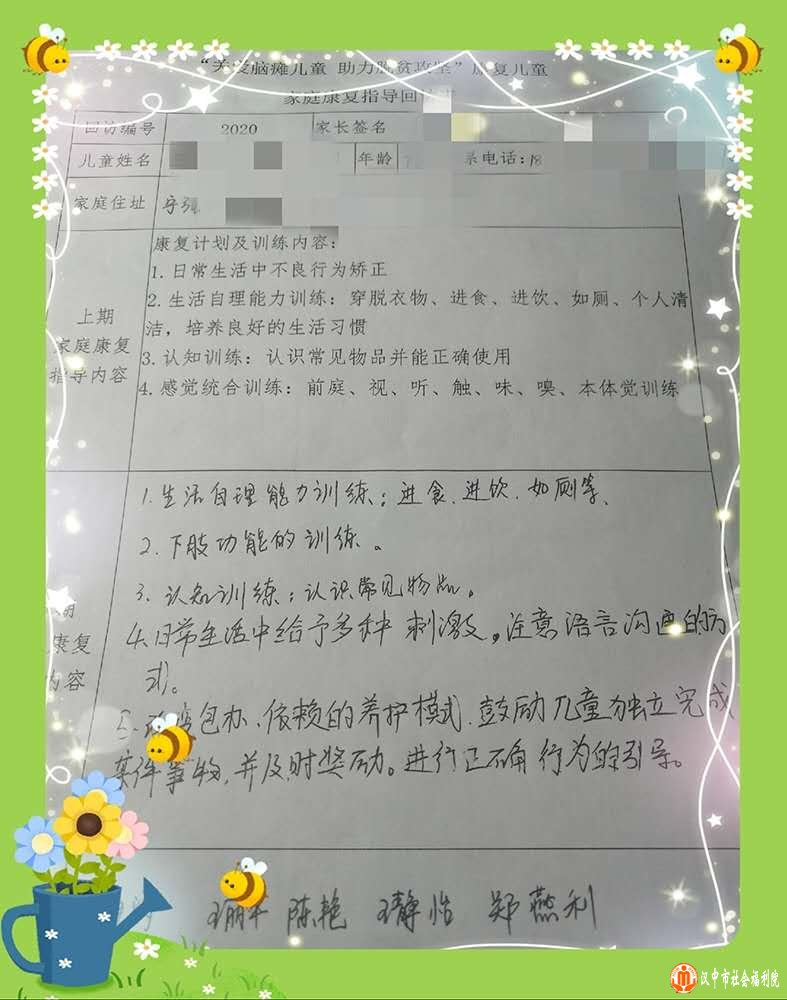 “关爱脑瘫儿童 助力脱贫攻坚”康复儿童
家庭康复指导回
回访编号 2020 家长签名
儿童姓名 年龄 系电话:18
家庭住址
上期
家庭康复
指导内容
康复计划及训练内容:
1.日常生活中不良行为矫正
2.生活自理能力训练:穿脱衣物、进食、进饮、如厕、个人清
洁,培养良好的生活习惯
3.认知训练:认识常见物品并能正确使用
4.感觉统合训练:前庭、视、听、触、味、嗅、本体觉训练
期
康复
内容
1.生活自理能力训练:进食.进饮.如厕等.
2.下肢功能的训练。
3.认知训练:认识常见物品。
4.日常生活中给予多种刺激。注意语言沟通的方
式。
5.改变包办、依赖的养护模式.鼓励儿童独立完成
某件事物,并及时奖励。进行正确行为的引导。
陈艳 静怡 郑燕利
汉中市社会福利院